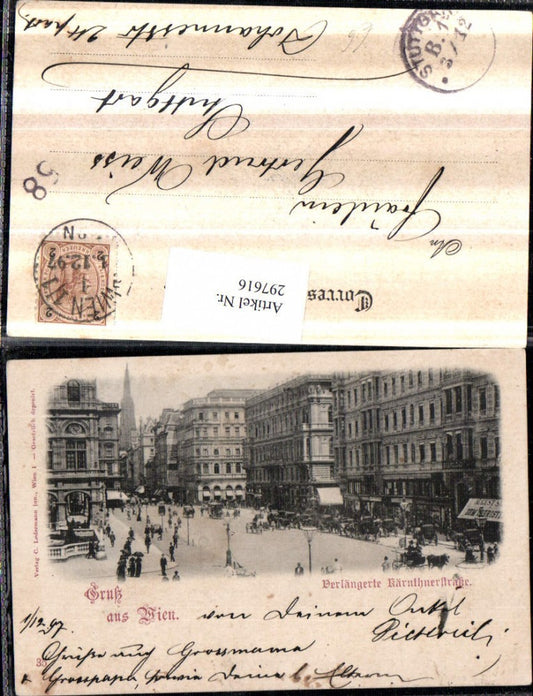 Correspondenz-
An
Fräulein
Gertrud Weiss
Stuttgart
Johannesstr 24 part.
66
STUTTGART
B.
3/12
58
WIEN 1/1
1.12.97
Artikel Nr.
297616
Verlag C. Ledermann jun., Wien I — Gesetzlich deponirt.
Verlängerte Kärnthnerstraße.
Gruß
aus Wien.
1/12 97.
von Deinem Onkel
Grüsse auch Grossmama
Grosspapa, sowie Deine l. Eltern
35